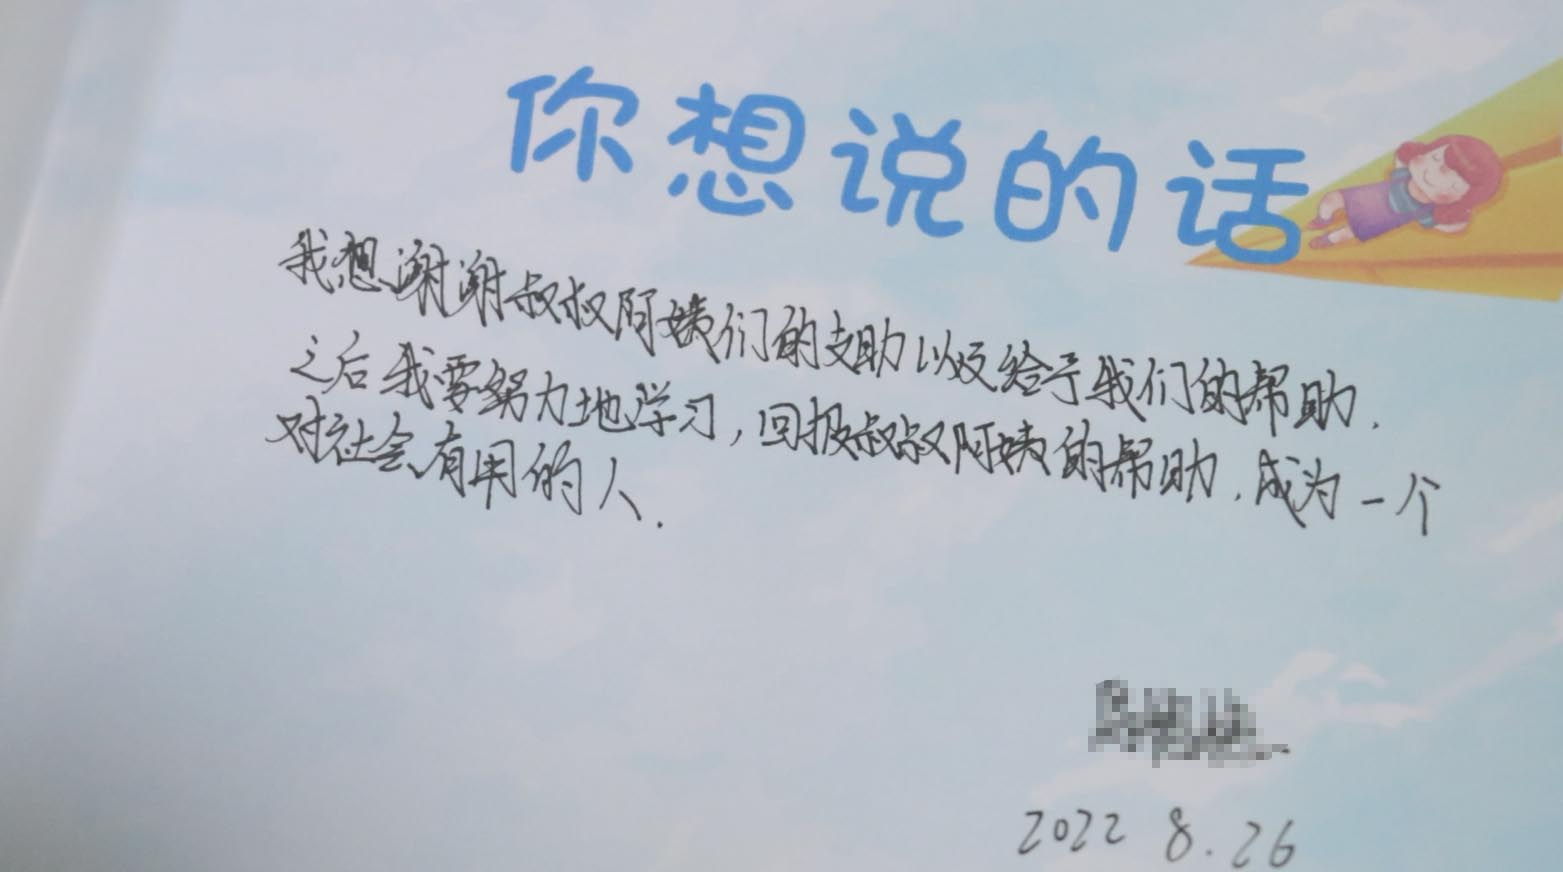 你想说的话
我想谢谢叔叔阿姨们的支助以及给予我们的帮助.
之后我要努力地学习,回报叔叔阿姨的帮助.成为一个
对社会有用的人.
2022 8.26